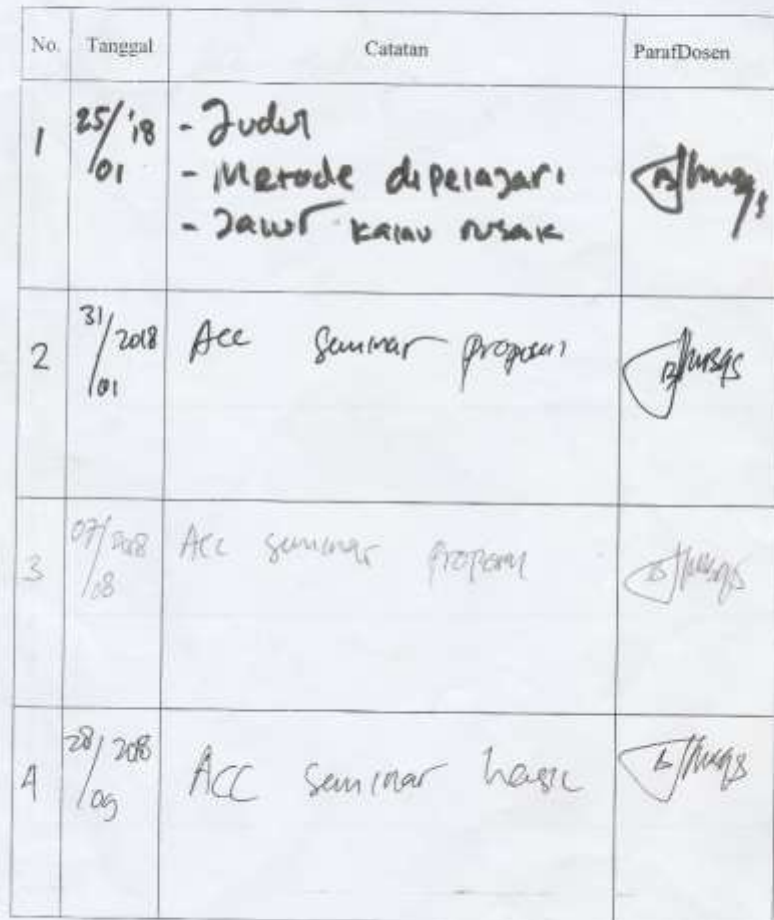 No. Tanggal Catatan ParafDosen
1 25/01 '18 - Judul
- Metode dipelajari
- Jawur kalau rusak
2 31/01 2018 Acc Seminar proposal
3 07/ 2018 Acc seminar proposal
4 28/09 2018 ACC Seminar hasil